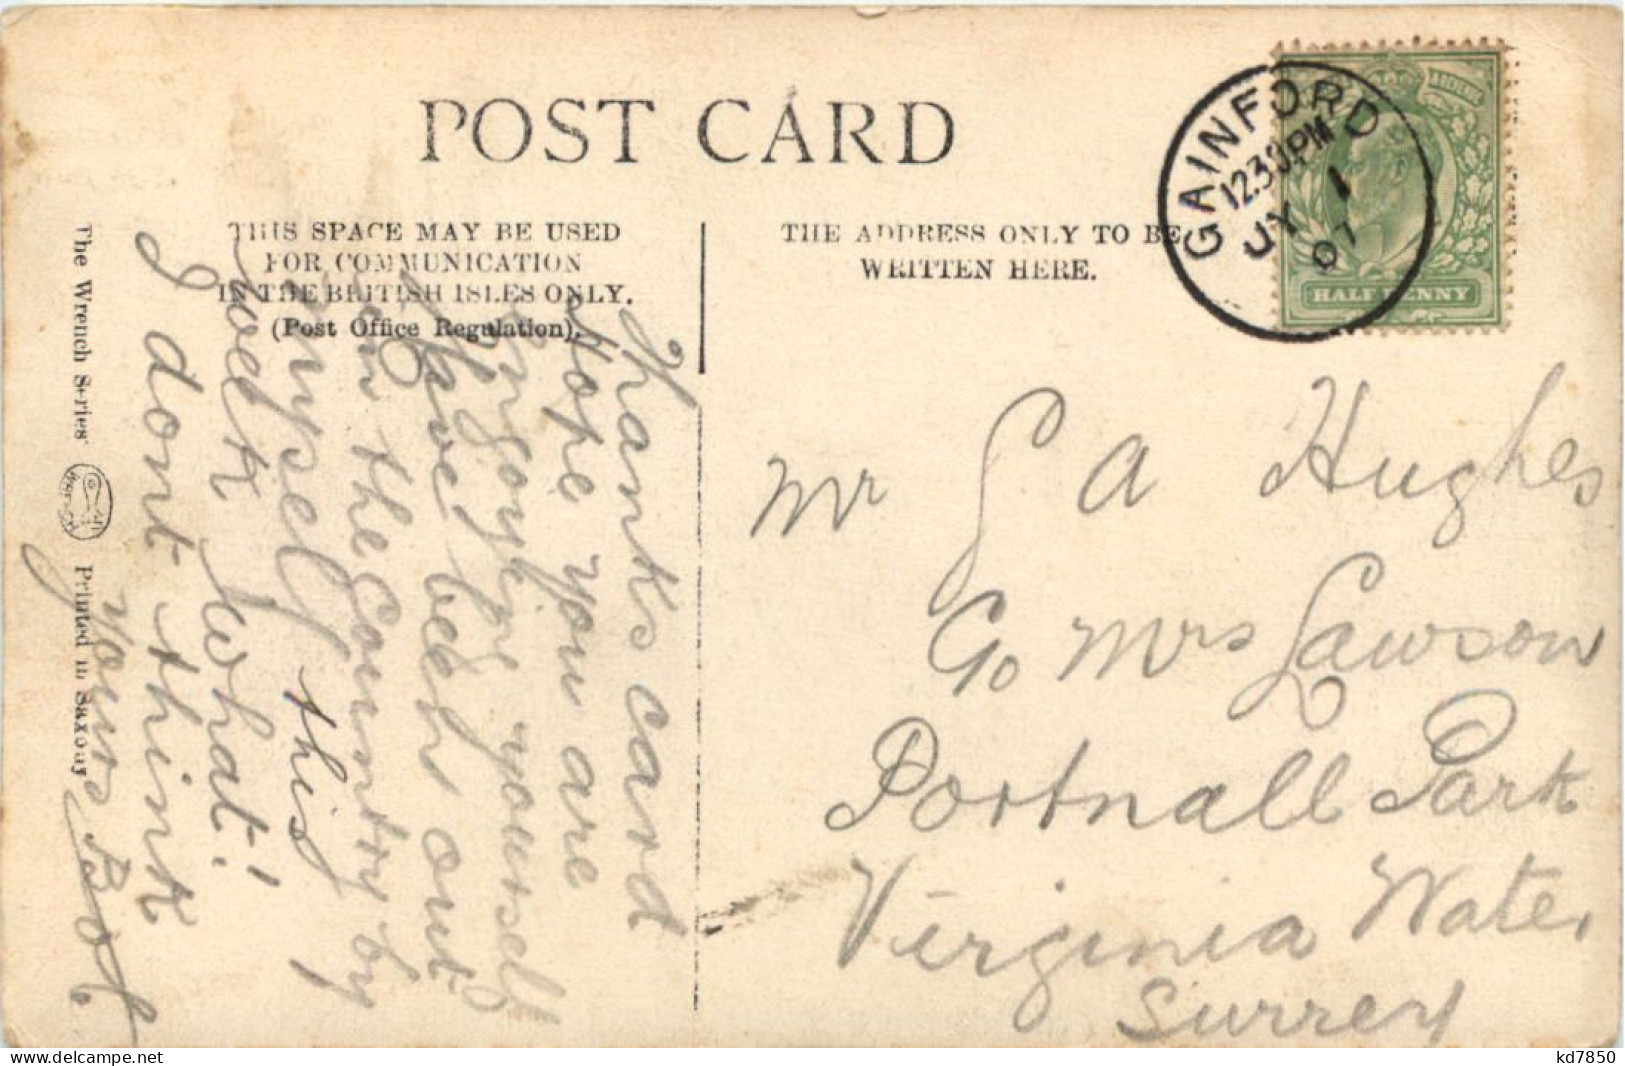 POST CARD
THIS SPACE MAY BE USED
FOR COMMUNICATION
IN THE BRITISH ISLES ONLY.
(Post Office Regulation).
THE ADDRESS ONLY TO BE
WRITTEN HERE.
GAINFORD
12.30PM
JY 1
07
REVENUE
HALFPENNY
The Wrench Series
Printed in Saxony
Thanks card
Hope you are
enjoying yourself
Have been out
in the Country by
myself this
week what!
I dont think
yours Bob
Mr G A Hughes
C/o Mrs Lawson
Portnall Park
Virginia Water
Surrey
delcampe.net
kd7850